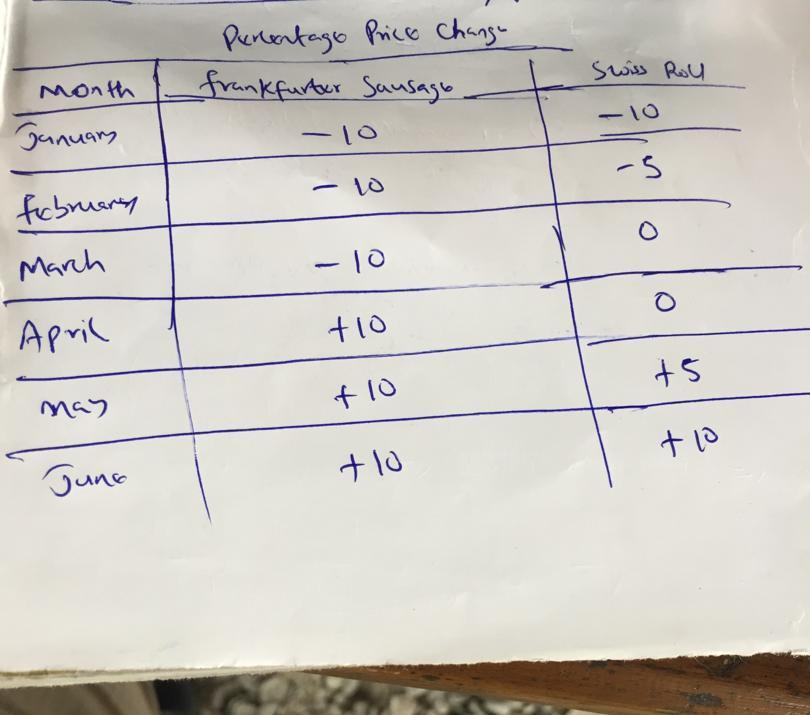 Percentage Price Change
Month Frankfurter Sausage Swiss Roll
January -10 -10
February -10 -5
March -10 0
April +10 0
May +10 +5
June +10 +10